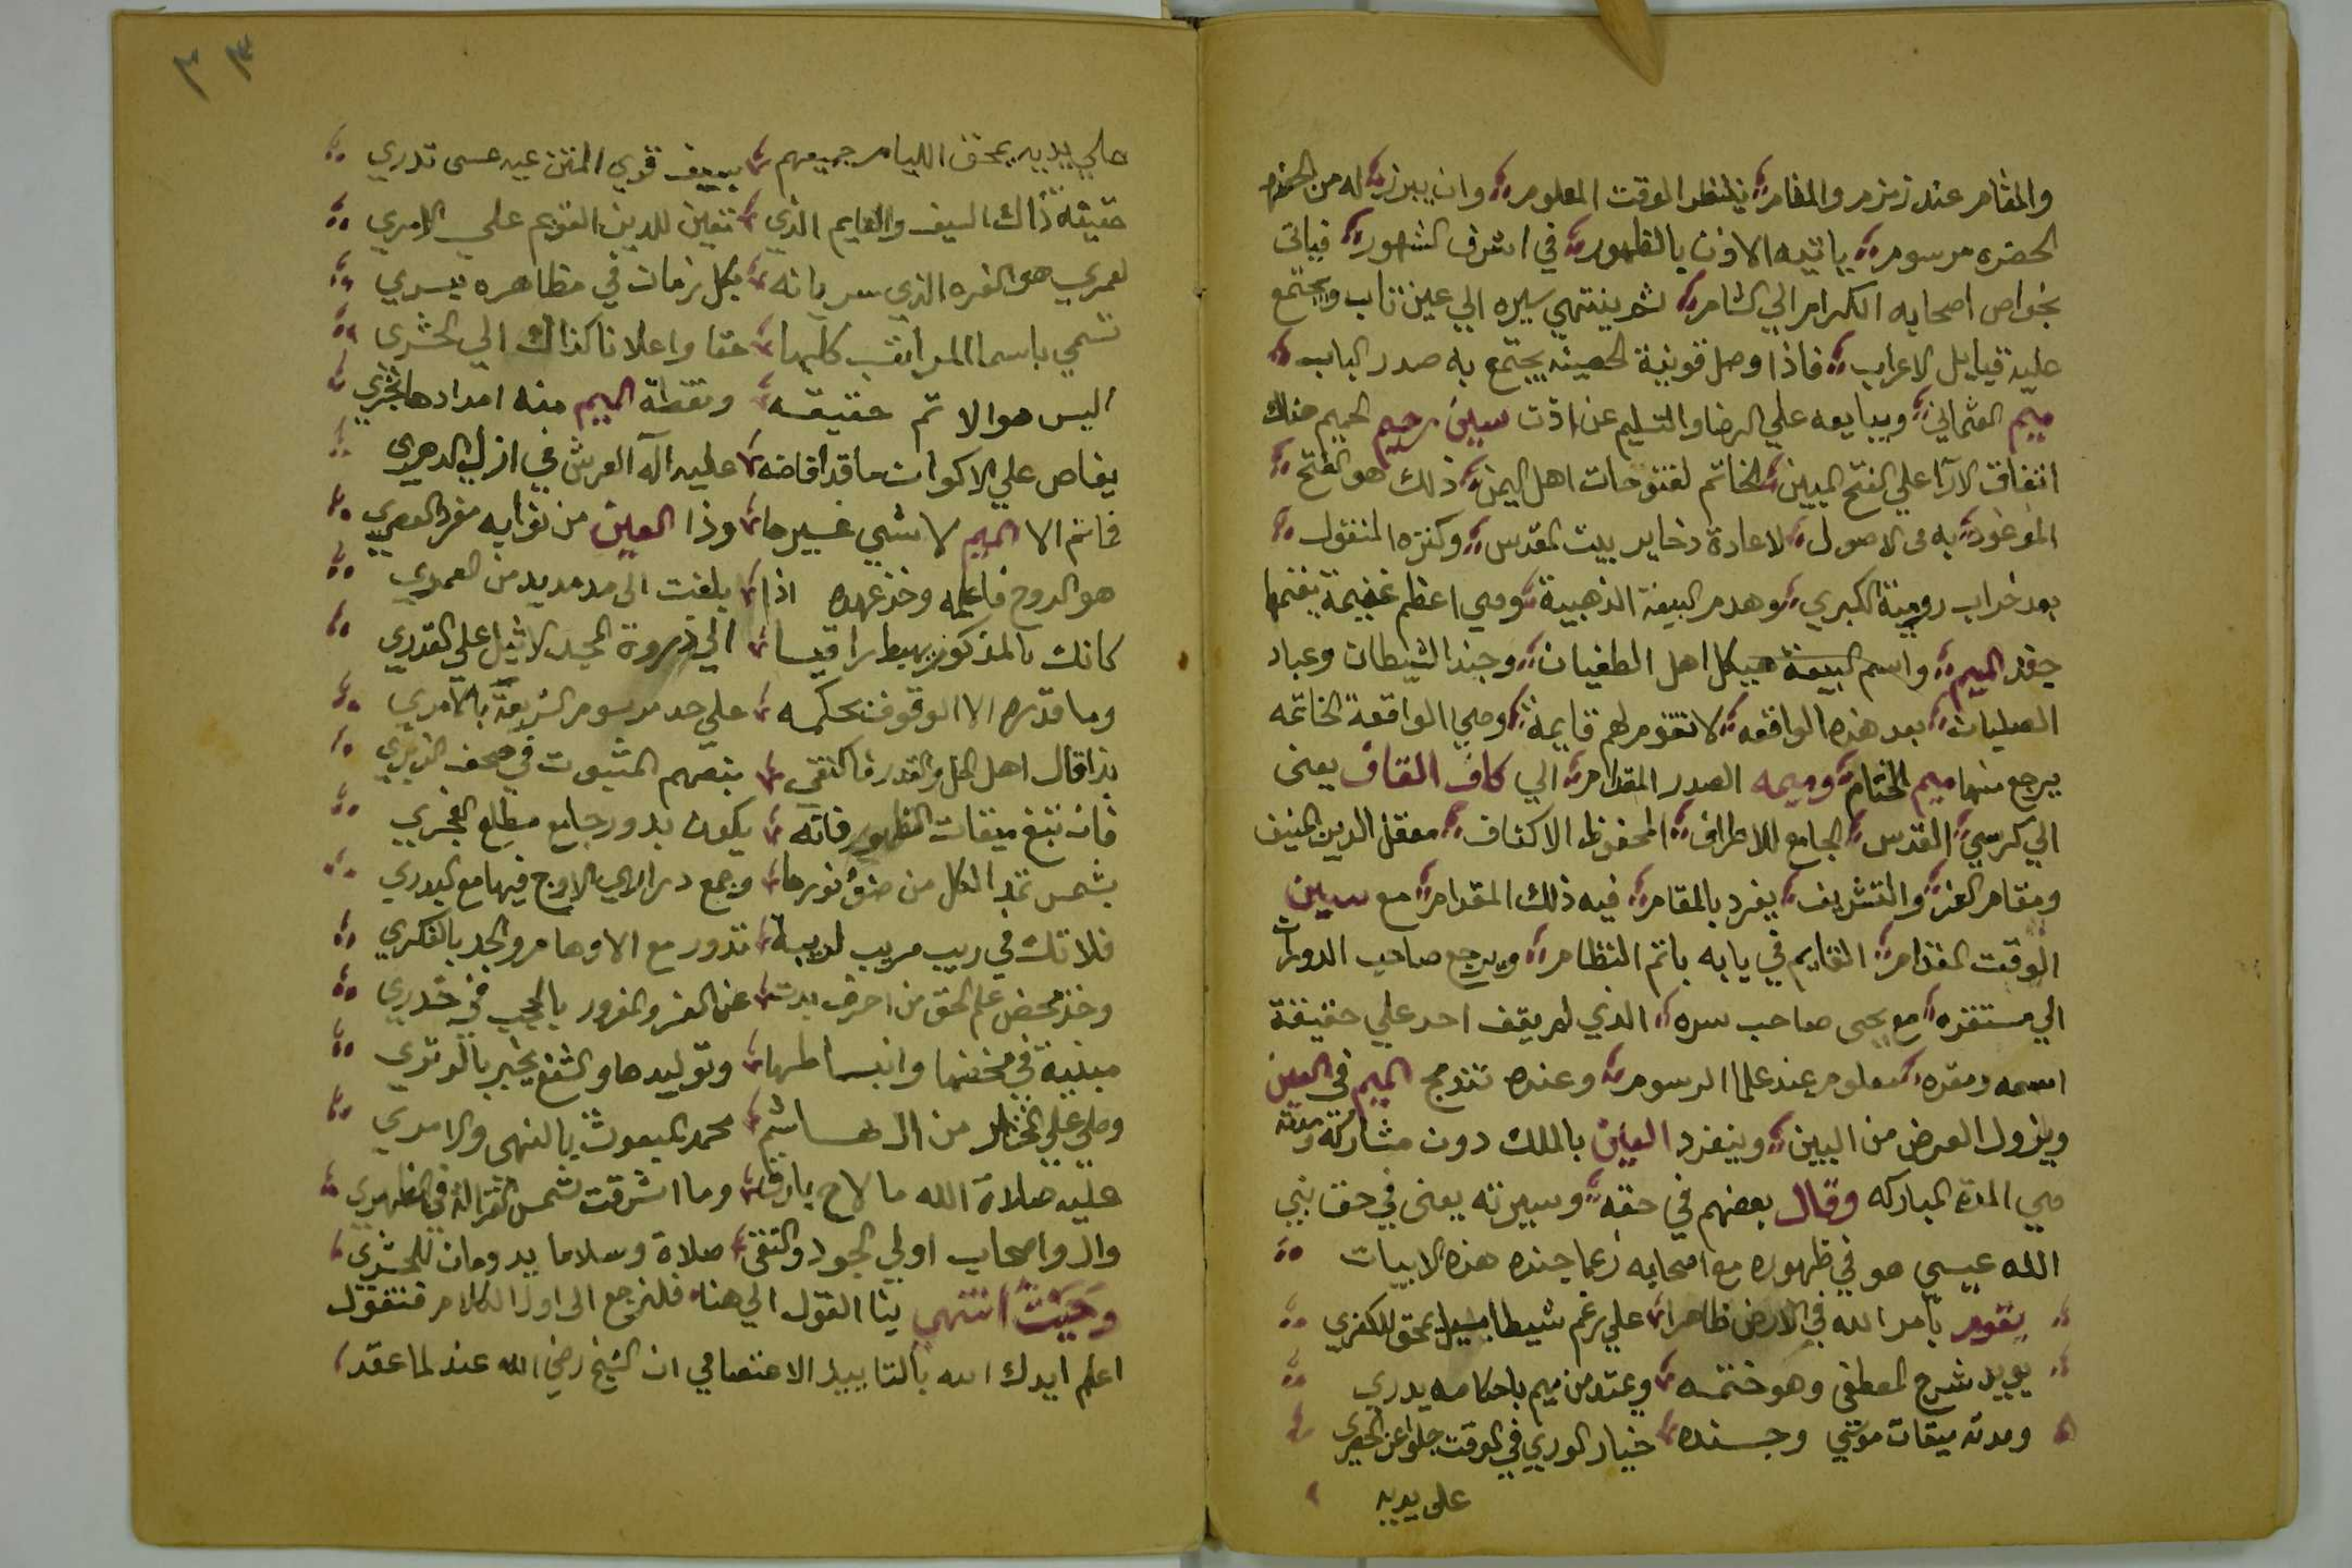 والمقام عند زمزم والمقام ينتظر الوقت المعلوم وان يبرز له من الحضره
الحضره مرسوم ياتيه الاذن بالظهور في اشرف الشهور فياتى
بخواص اصحابه الكرام الي الشام ثم ينتهي سيره الي عين تاب ويجتمع
عليه قبايل الاعراب فاذا وصل قونية الحصينه يجتمع به صدر الباب
ميم العثماني ويبايعه علي الرضا والتسليم عن اذن سين رحيم الميم هناك
اتفاق الآرا علي الفتح المبين الخاتم لفتوحات اهل اليمن ذلك هو الفتح
الموعود به في الاصول لاعادة ذخاير بيت المقدس وكنزه المنقول
بعد خراب رومية الكبري وهدم البيعة الذهبية وهي اعظم غنيمة يغنمها
جفر الميم واسم البيعة هيكل اهل الطغيان وجند الشيطان وعباد
الصلبان بعد هذه الواقعه لا تقوم لهم قايمة وهي الواقعة الخاتمه
يرجع منها ميم الختام وميمه الصدر المقدام الي كاف القاف يعنى
الي كرسي المقدس الجامع للاطراف المحفوظ الاكناف معقل الدين الحنيف
ومقام العز والتشريف يفرد بالمقام فيه ذلك المقدام مع سين
الوقت القايم في بابه باتم النظام ويرجع صاحب الدورات
الي مستقره مع يحيى صاحب سره الذي لم يقف احد علي حقيقة
اسمه ومقره معلوم عند علما الرسوم وعنده تندمج الميم في العين
ويزول العرض من البين وينفرد العين بالملك دون مشاركه ومدته
هي المدة المباركه وقال بعضهم في حقه وسيرته يعنى في حق نبي
الله عيسي هو في ظهوره مع اصحابه زعما جنده هذه الابيات
يقوم بامر الله في الارض ظاهرا علي رغم شيطان يمحق للكفري
يويد شرع المصطفى وهو ختمه وعتد من ميم باحكامه يدري
ومدته ميقات موسي وجنده خيار الوري في الوقت جلوا عن الحصري
على يديه
علي يديه يمحق الليام جميعهم بسيف قوي المتن عيه عسى تدري
حقيقة ذاك السيف والقايم الذي تعين للدين القويم علي الامري
لعمري هو الفرد الذي سريانه بكل زمان في مظاهره يسري
تسمي باسما المراتب كلها حقا واعلانا كذاك الي الحشري
اليس هو الاتم حقيقه ونقطة الميم منه امدادها تجري
يفاض علي الاكوان ما قد افاضه عليه اله العرش في ازل الدهري
فما تم الا الميم لا شي غيرها وذا العين من نوابه مفرد العصري
هو الروح فاعلمه وخذ عهده اذا بلغت الى مد مديد من العمري
كانك بالمذكور يهبط راقيا الي ذروة المجد الاثيل علي القدري
وما قدره الا الوقوف بحكمه علي حد مرسوم الشريعة بالامري
بذا قال اهل الحل والقدر فاكتفي بنصهم المثبوت في صحف الزبري
فان تبغ ميقات الظهور فانه يكون بدور جامع مطلع الفجري
بشمس تمد الكل من ضو نورها وجمع دراري الاوج فيها مع البدري
فلا تك في ريب مريب لريبة تدور مع الاوهام والجد بالفكري
وخذ محض علم الحق من احرف بدت عن الغر والمغرور بالحجب في خدري
مبنية في خفضها وانبساطها وتوليدها والشفع يخبر بالوتري
وصلي علي المختار من ال هاشم محمد المبعوث بالنهي والامري
عليه صلاة الله ما لاح بارق وما اشرقت شمس الغزالة في الظهري
وال واصحاب اولي الجود والتقى صلاة وسلاما يدومان للحشري
وحيث انتهي بنا القول الي هنا فلنرجع الى اول الكلام فنقول
اعلم ايدك الله بالتاييد الاعتصامي ان الشيخ رضي الله عند لما عقد